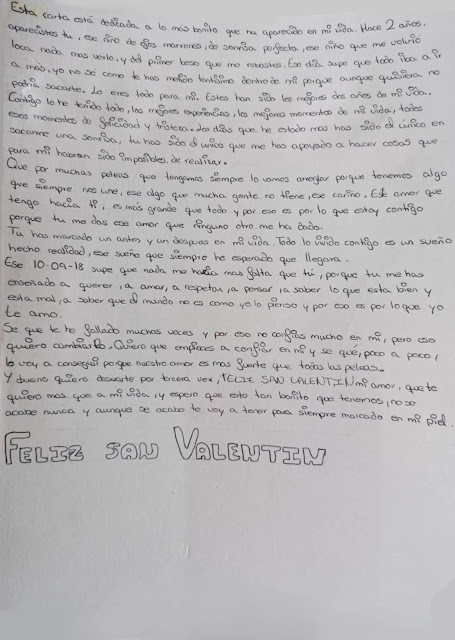 Esta carta está dedicada a lo más bonito que ha aparecido en mi vida. Hace 2 años,
aparecistes tu, ese niño de ojos marrones, de sonrisa perfecta, ese niño que me volvió
loca nada mas verlo, y del primer beso que me robastes. Ese día supe que todo iba a ir
a mas, yo no sé como te has metido tantisimo dentro de mi porque aunque quisiera no
podria sacarte. Lo eres todo para mi. Estos han sido los mejores dos años de mi vida.
Contigo lo he tenido todo, las mejores experiencias, los mejores momentos de mi vida, todos
esos momentos de felicidad y tristeza. Los días que he estado mas has sido el único en
sacarme una sonrisa, tu has sido el unico que me has apoyado a hacer cosas que
para mi habrian sido imposibles de realizar.
Que por muchas peleas que tengamos siempre lo vamos arreglar porque tenemos algo
que siempre nos une, ese algo que mucha gente no tiene, ese cariño. Este amor que
tengo hacia ti, es más grande que todo y por eso es por lo que estoy contigo
porque tu me das ese amor que ninguno otro me ha dado.
Tu has marcado un antes y un despues en mi vida. Todo lo vivido contigo es un sueño
hecho realidad, ese sueño que siempre he esperado que llegara.
Ese 10-09-18 supe que nada me hacia mas falta que tú, porque tu me has
enseñado a querer, a amar, a respetar, a pensar, a saber lo que esta bien y
esta mal, a saber que el mundo no es como yo lo pienso y por eso es por lo que yo
te amo.
Se que te he fallado muchas veces y por eso no confias mucho en mi, pero eso
quiero cambiarlo. Quiero que empieces a confiar en mi y se qué, poco a poco,
lo voy a conseguir porque nuestro amor es mas fuerte que todas las peleas.
Y bueno quiero desearte por tercera vez, FELIZ SAN VALENTIN mi amor, que te
quiero mas que a mi vida, y espero que esto tan bonito que tenemos, no se
acabe nunca y aunque se acabe te voy a tener para siempre marcado en mi piel.
FELIZ SAN VALENTIN